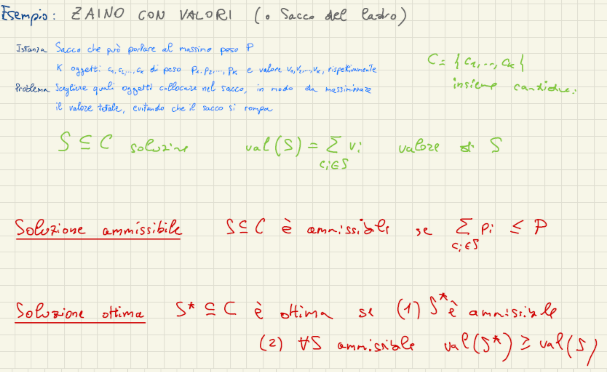 Esempio: ZAINO CON VALORI (o Sacco del ladro)
Istanza Sacco che può portare al massimo peso P
K oggetti c₁, c₂, ..., cₖ di peso p₁, p₂, ..., pₖ e valore v₁, v₂, ..., vₖ, rispettivamente
C = {c₁, ..., cₖ}
insieme candidati
Problema Scegliere quali oggetti collocare nel sacco, in modo da massimizzare
il valore totale, evitando che il sacco si rompa
S ⊆ C soluzione val(S) = ∑ cᵢ∈S vᵢ valore di S
Soluzione ammissibile S ⊆ C è ammissibile se ∑ cᵢ∈S pᵢ ≤ P
Soluzione ottima S* ⊆ C è ottima se (1) S* è ammissibile
(2) ∀S ammissibile val(S*) ≥ val(S)